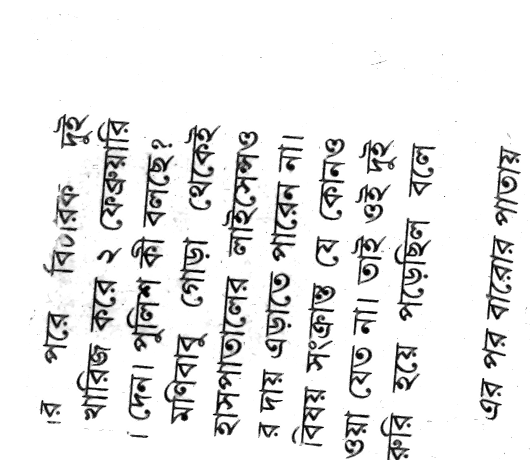 র পরে বিচারক দুই
খারিজ করে ২ ফেব্রুয়ারি
। দেন। পুলিশ কী বলছে?
মণিবাবু গোড়া থেকেই
হাসপাতালের লাইসেন্সও
র দায় এড়াতে পারেন না।
বিষয় সংক্রান্ত যে কোনও
ওয়া যেত না। তাই ওই দুই
রুরি হয়ে পড়েছিল বলে
এর পর বারোর পাতায়